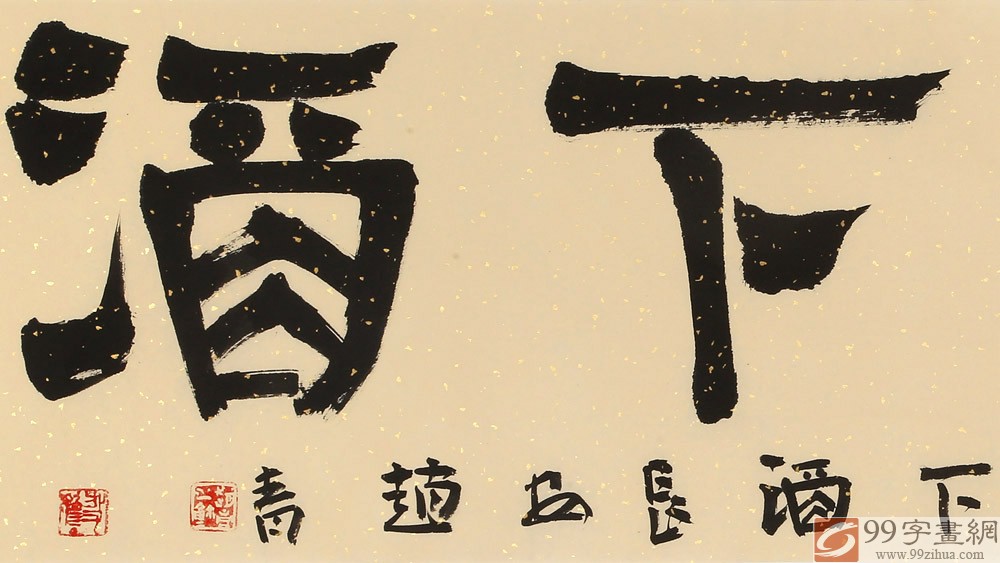 下酒
下酒長安趙青
99字畫網
www.99zihua.com